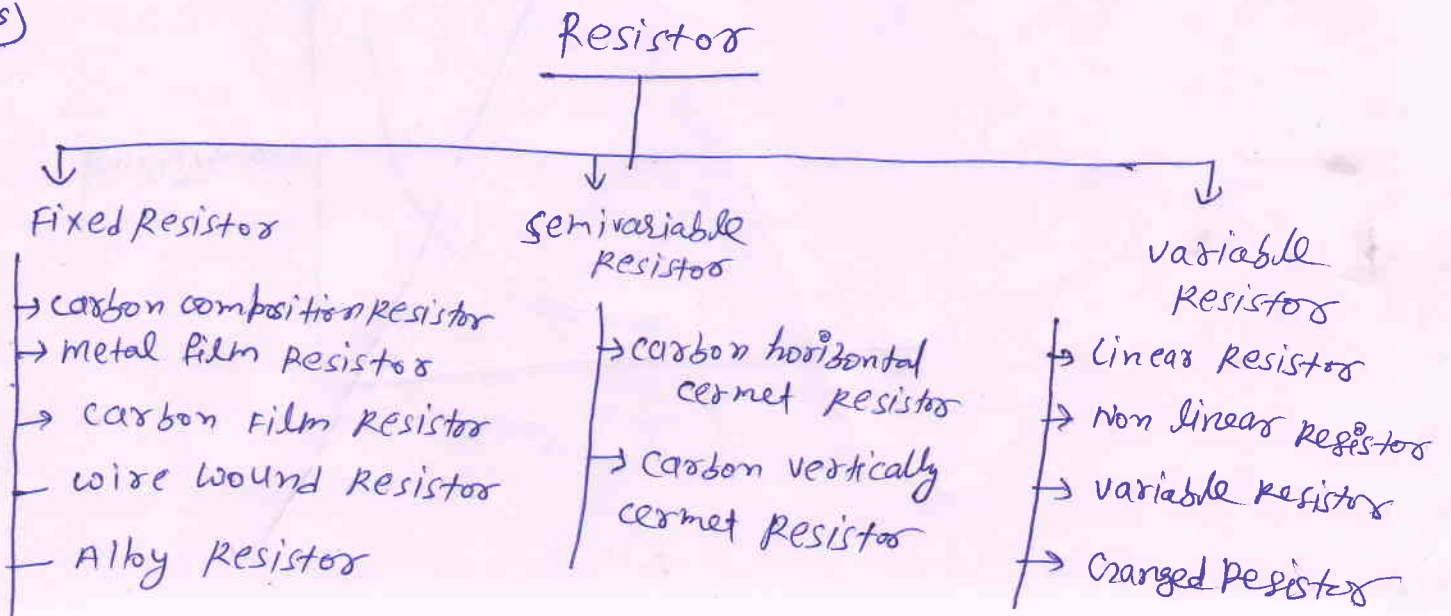 s)
Resistor
Fixed Resistor
carbon composition Resistor
metal film Resistor
carbon Film Resistor
wire wound Resistor
Alloy Resistor
semivariable
Resistor
carbon horizontal
cermet Resistor
carbon vertically
cermet Resistor
variable
Resistor
Linear Resistor
Non linear Resistor
variable Resistor
Ganged Resistor